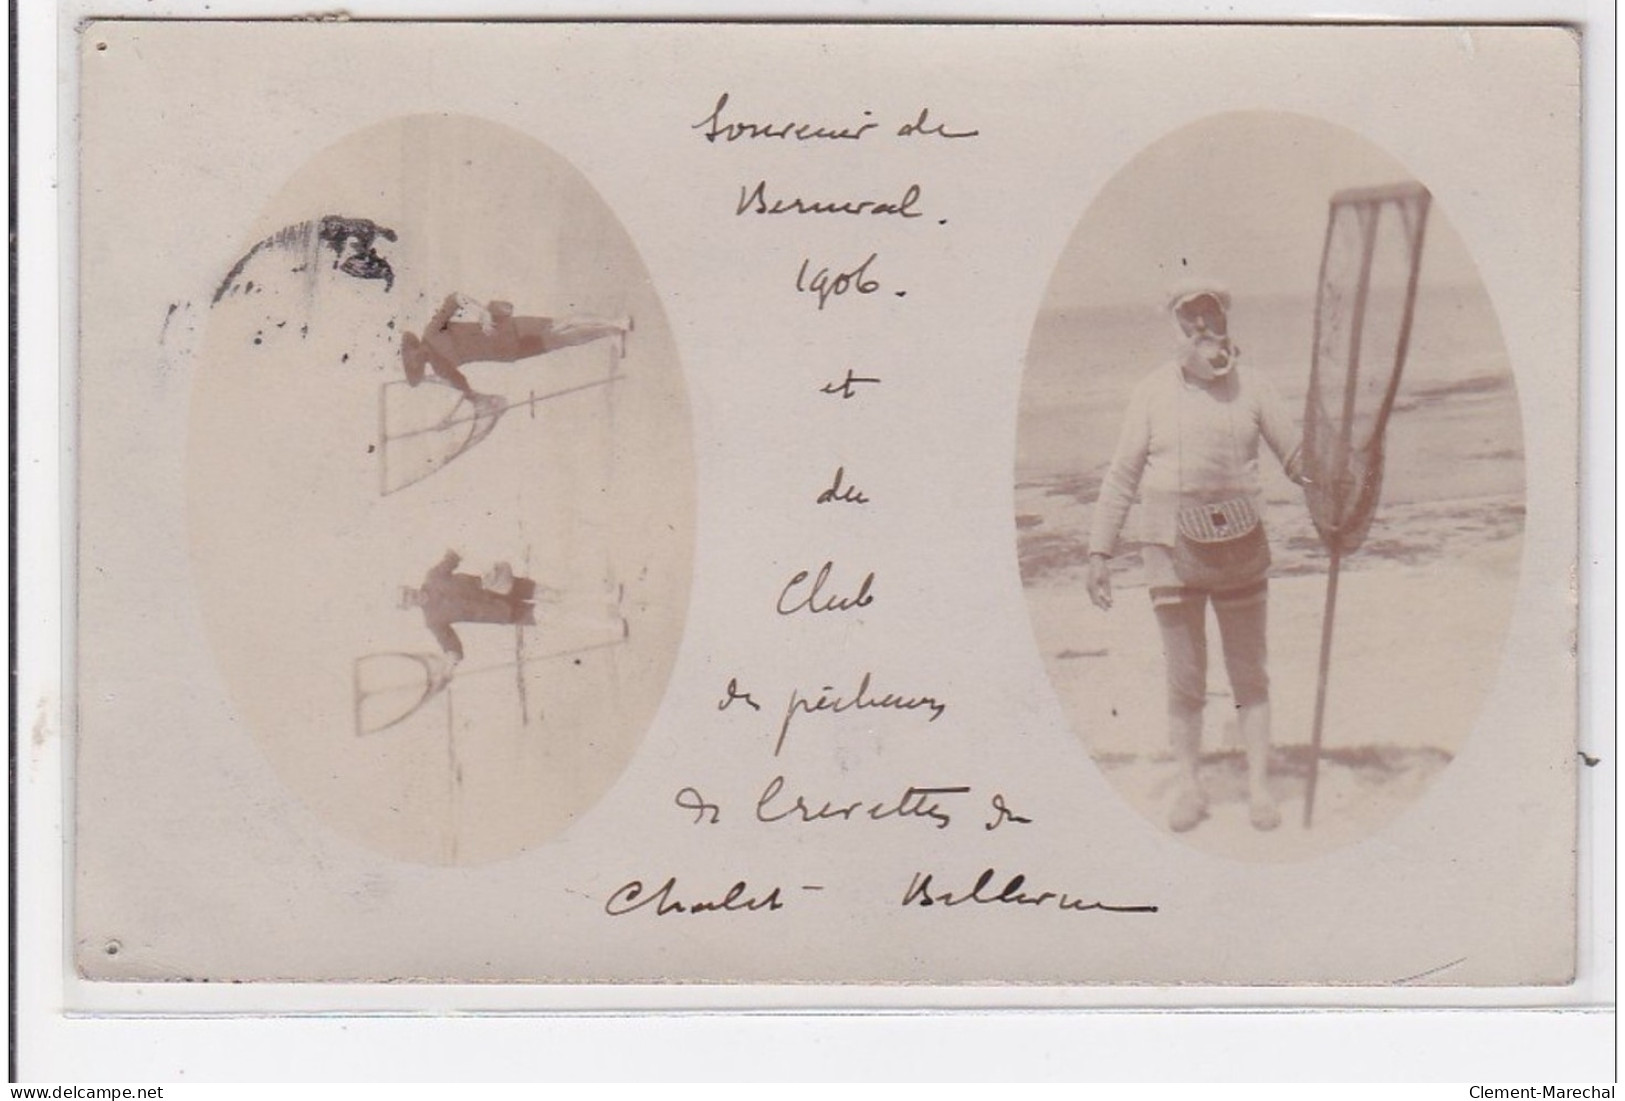 Souvenir de
Berneval.
1906.
et
du
Club
des pêcheurs
de Crevettes du
Chalet - Bellevue
delcampe.net
Clement-Marechal